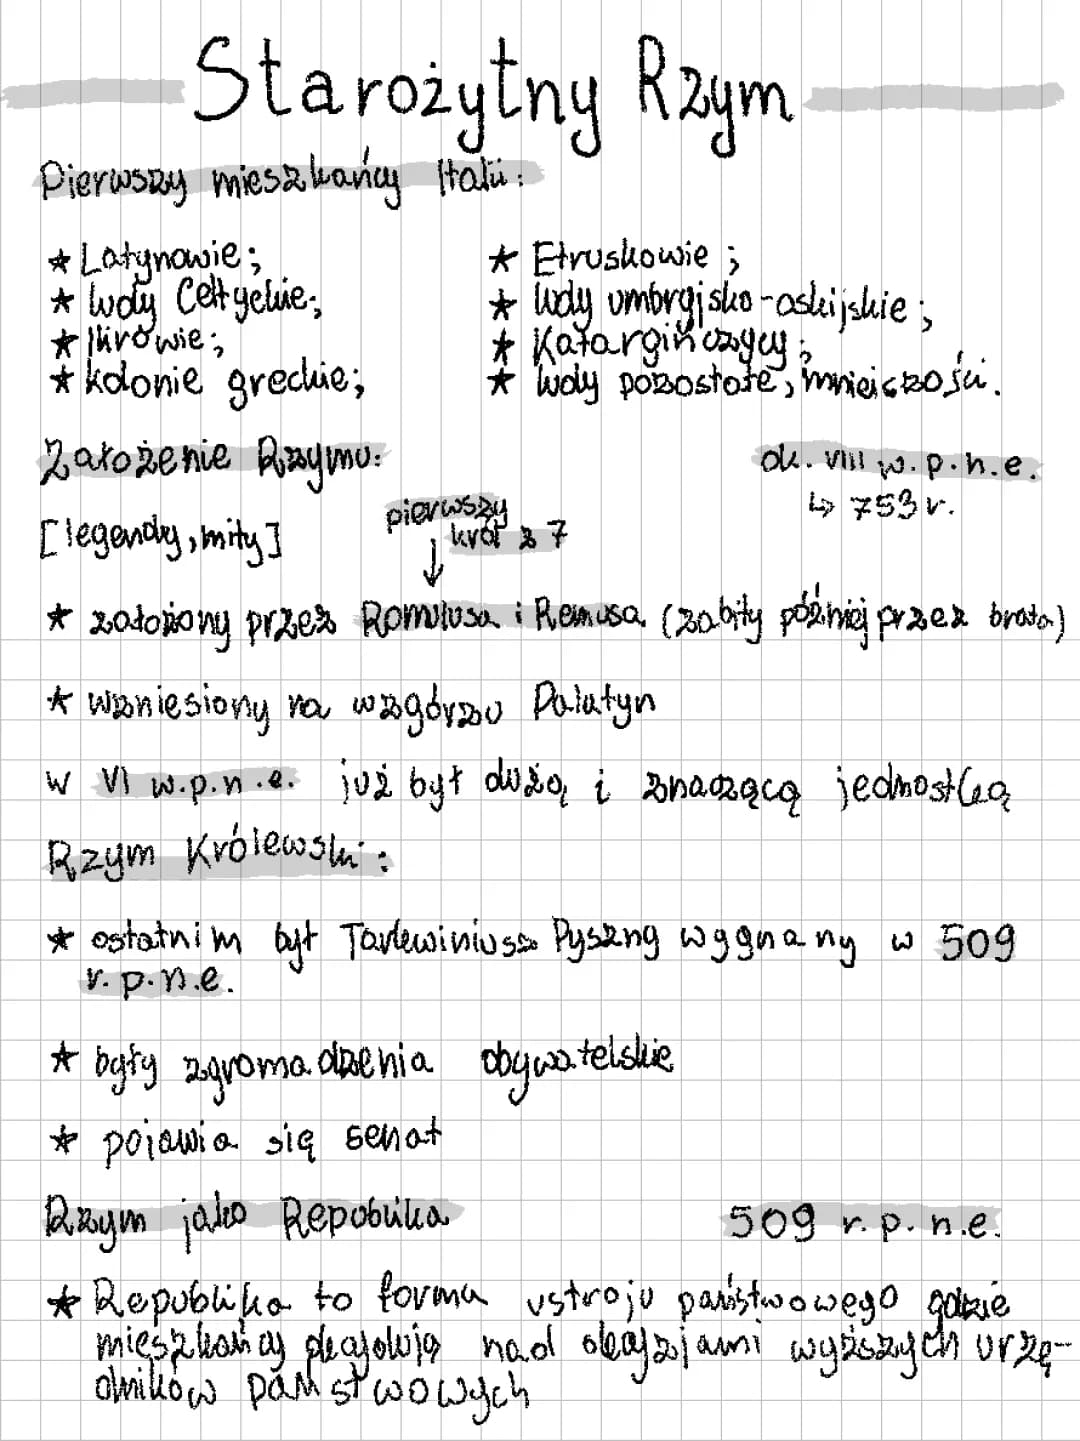 Starożytny Rzym
Pierwszy mieszkańcy Italii:
★ Latynowie;
★ ludy Celtyckie;
★ Ilirowie;
★ kolonie greckie;
★ Etruskowie;
★ ludy umbryjsko-oskijskie;
★ Katargińczycy;
★ ludy pozostałe, mniejszości.
Założenie Rzymu:
ok. VIII w.p.n.e.
↳ 753 r.
[legendy, mity]
pierwszy
król z 7
↓
★ założony przez Romulusa i Remusa (zabity później przez brata)
★ wzniesiony na wzgórzu Palatyn
W VI w.p.n.e. już był dużą i znaczącą jednostką
Rzym Królewski:
★ ostatnim był Pyszny wygnany w 509
r. p.n.e.
★ były zgromadzenia obywatelskie
★ pojawia się senat
Rzym jako Republika
509 r. p. n.e.
★ Republika to forma ustroju państwowego gdzie
mieszkańcy decydują nad decyzjami wyższych urzę-
dników państwowych